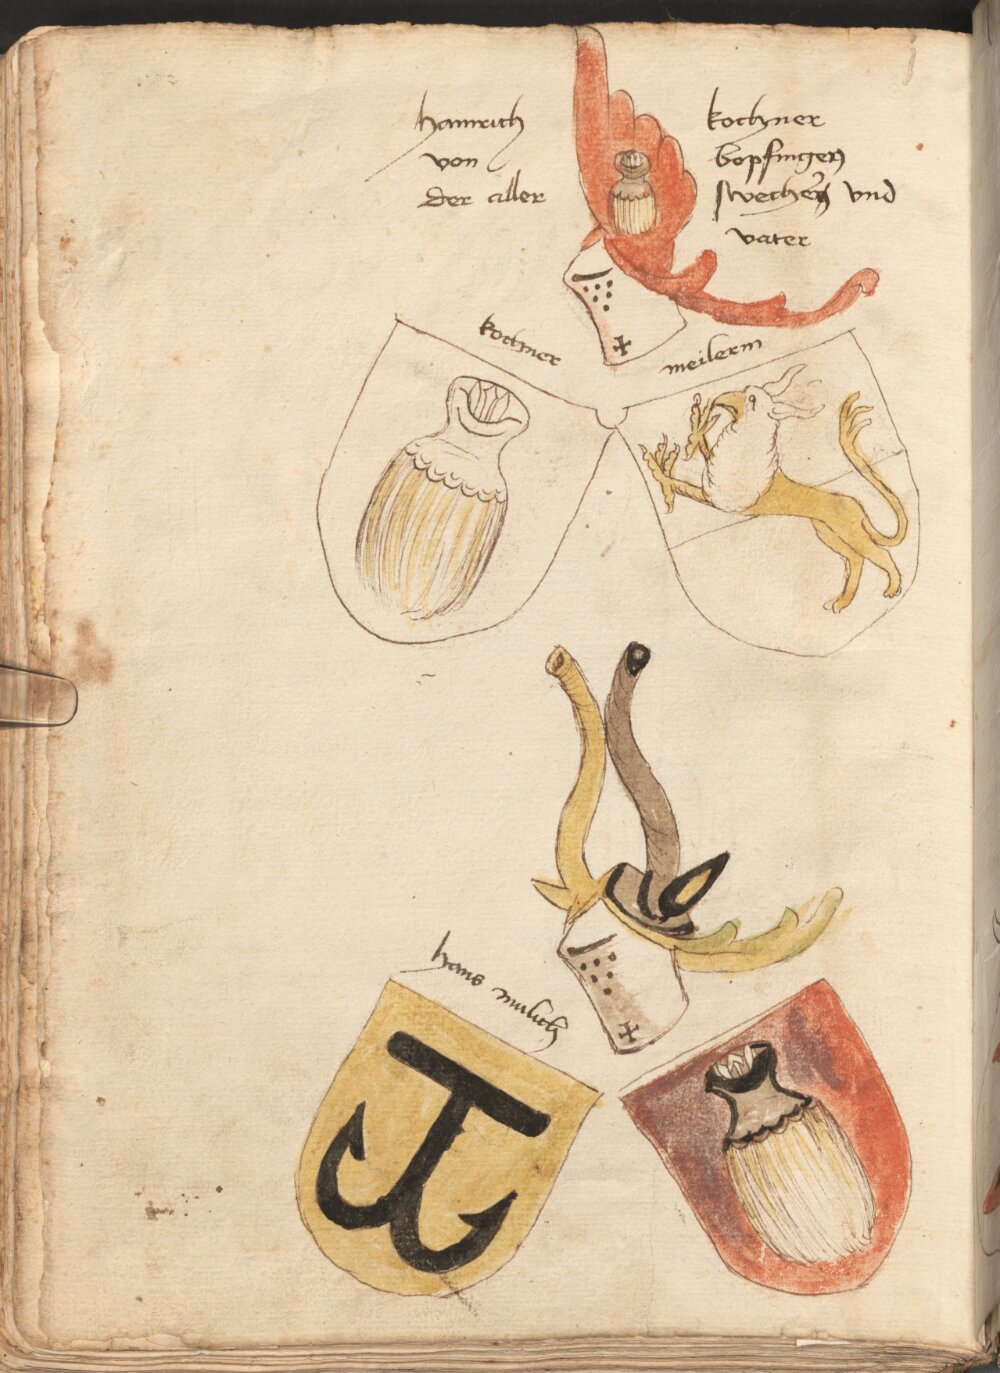 hainrich
von
der aller
kochner
bopfingen
swechen vnd
vater
kochner
meilerin
hans milich